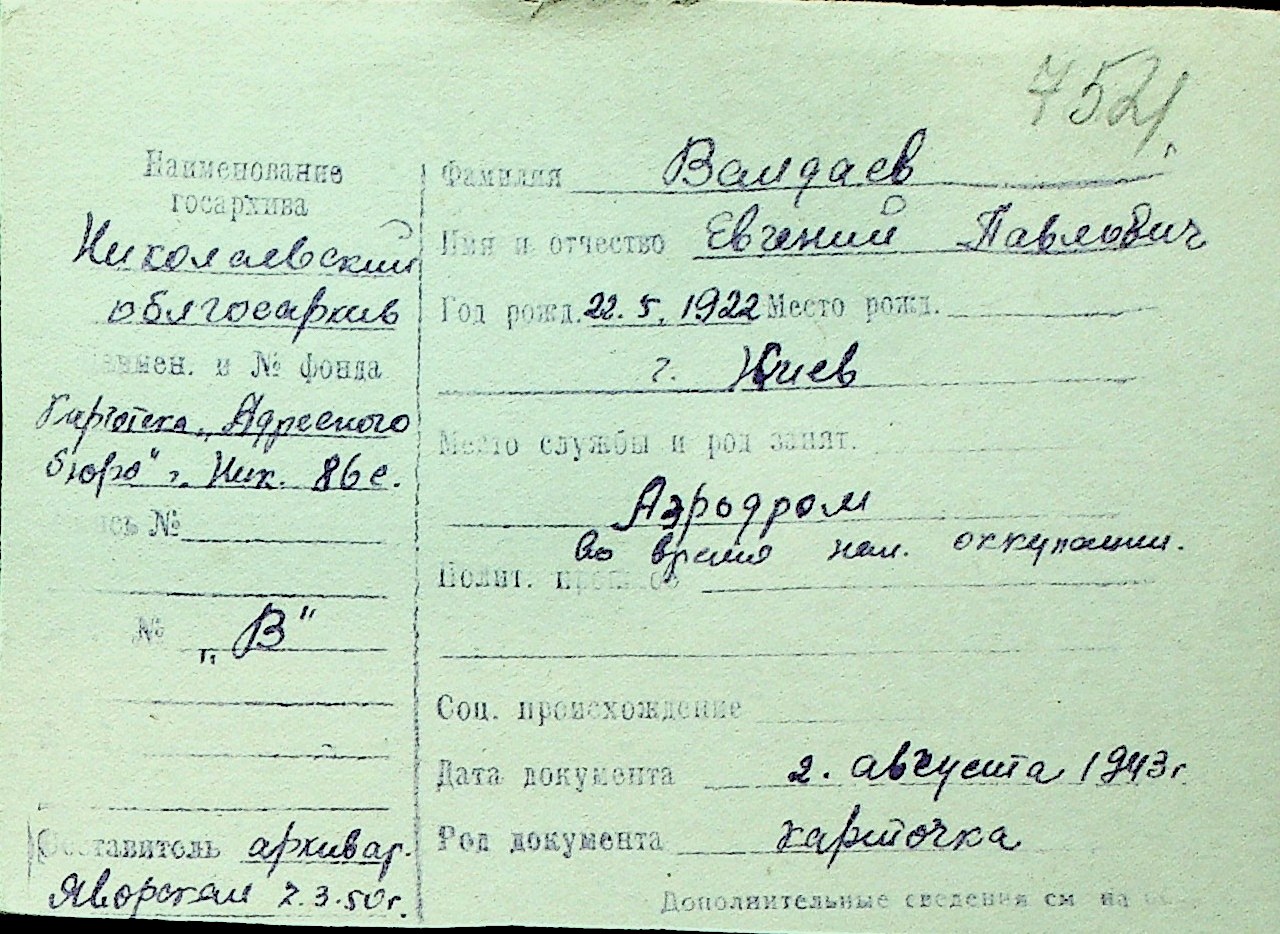 7521
Наименование
госархива
Николаевский
облгосархив
Наимен. и № фонда
Картотека „Адресного
бюро" г. Ник. 86 с.
ись №
№ „В"
Составитель архивар.
Яворская 7.3.50 г.
Фамилия Валдаев
Имя и отчество Евгений Павлович
Год рожд. 22. 5. 1922 Место рожд.
г. Киев
Место службы и род занят.
Аэродром
во время нем. оккупации.
Полит. прошлое
Соц. происхождение
Дата документа 2. августа 1943 г
Род документа карточка
Дополнительные сведения см на об